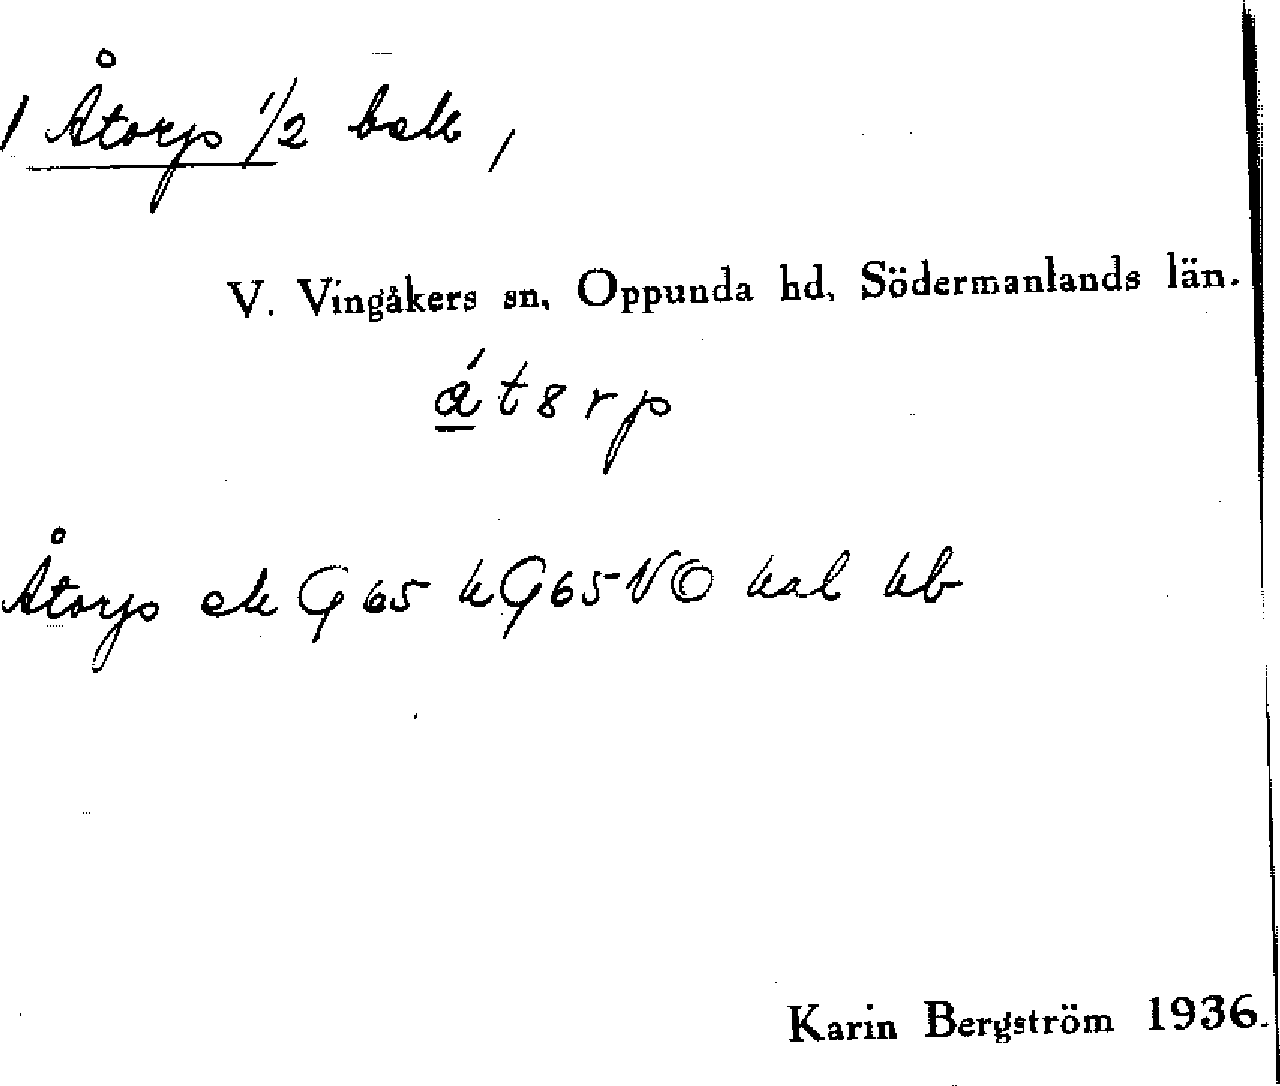 / Åtorp 1/2 bak /
V. Vingåkers sn, Oppunda hd, Södermanlands län.
á t 8 r p
Åtorp ek G 65 k G 65 NO kal kb
Karin Bergström 1936.